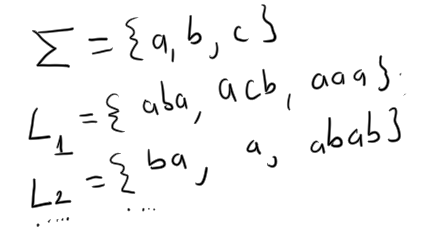 Σ = {a, b, c}
L₁ = { aba, acb, aaa }.
L₂ = { ba, a, abab}
..... ....